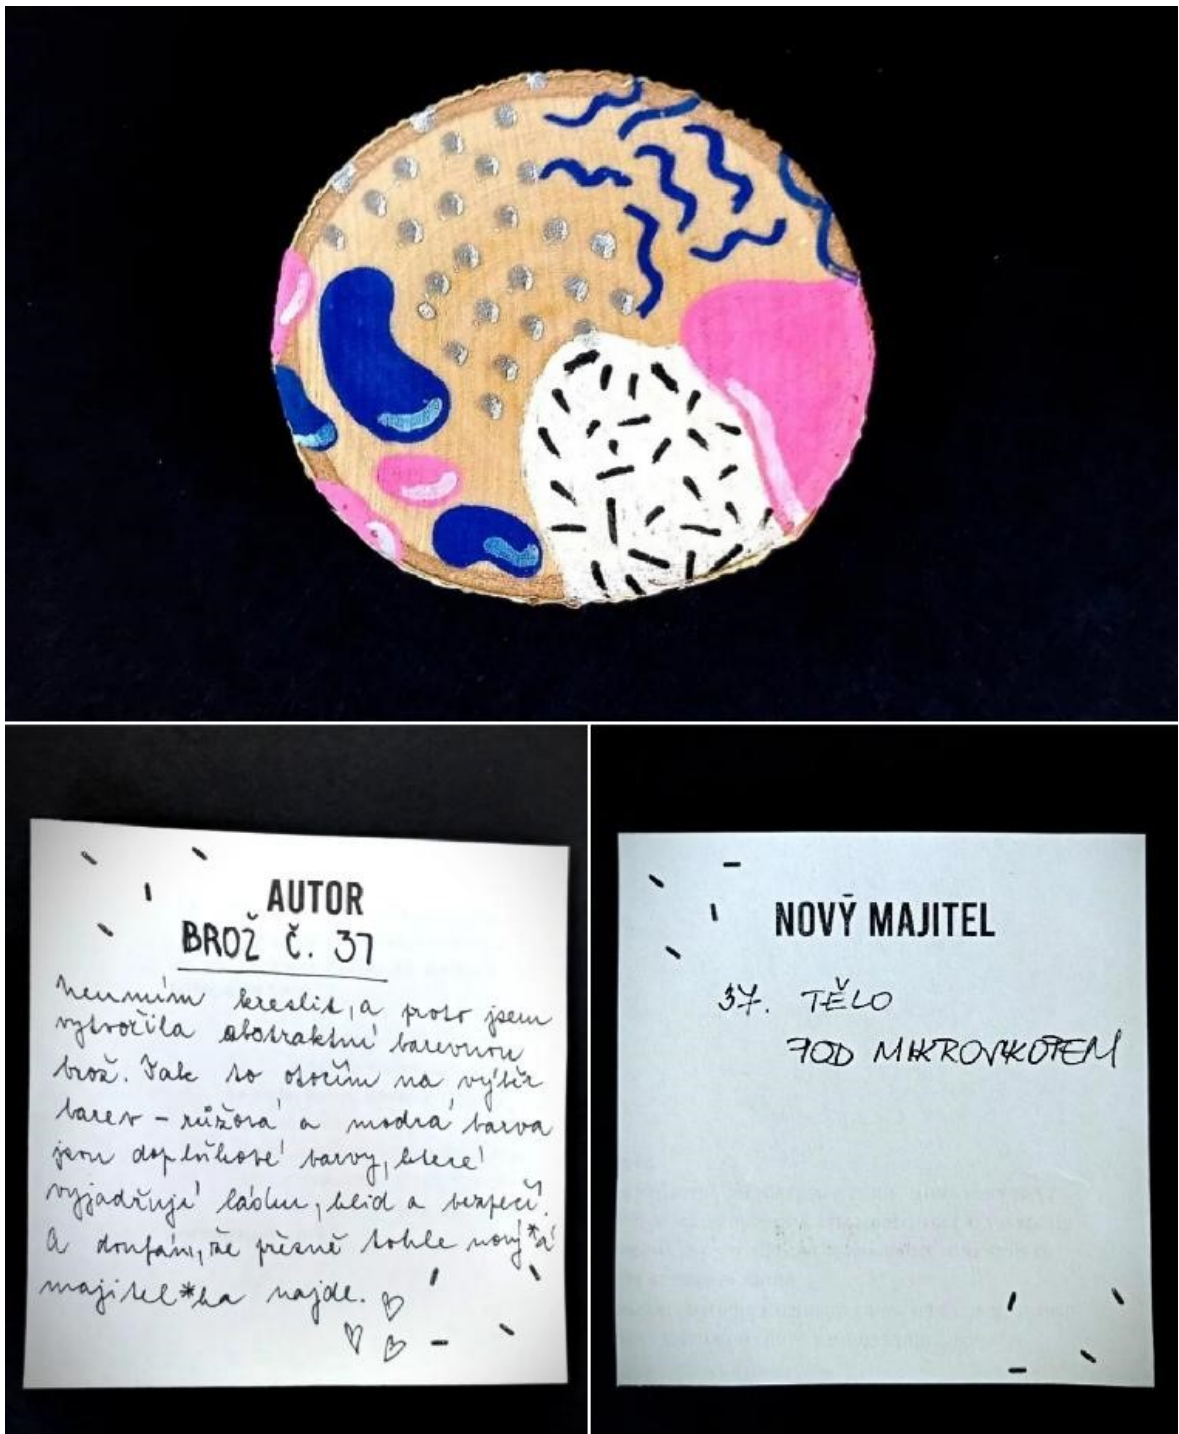 AUTOR
BROŽ č. 37
Neumím kreslit, a proto jsem
vytvořila abstraktní barevnou
brož. Tak to otočím na výběr
barev – růžová a modrá barva
jsou doplňkové barvy, které
vyjadřují lásku, klid a bezpečí.
A doufám, že přesně tohle nový*á
majitel*ka najde.
NOVÝ MAJITEL
37. TĚLO
POD MIKROVKOPEM